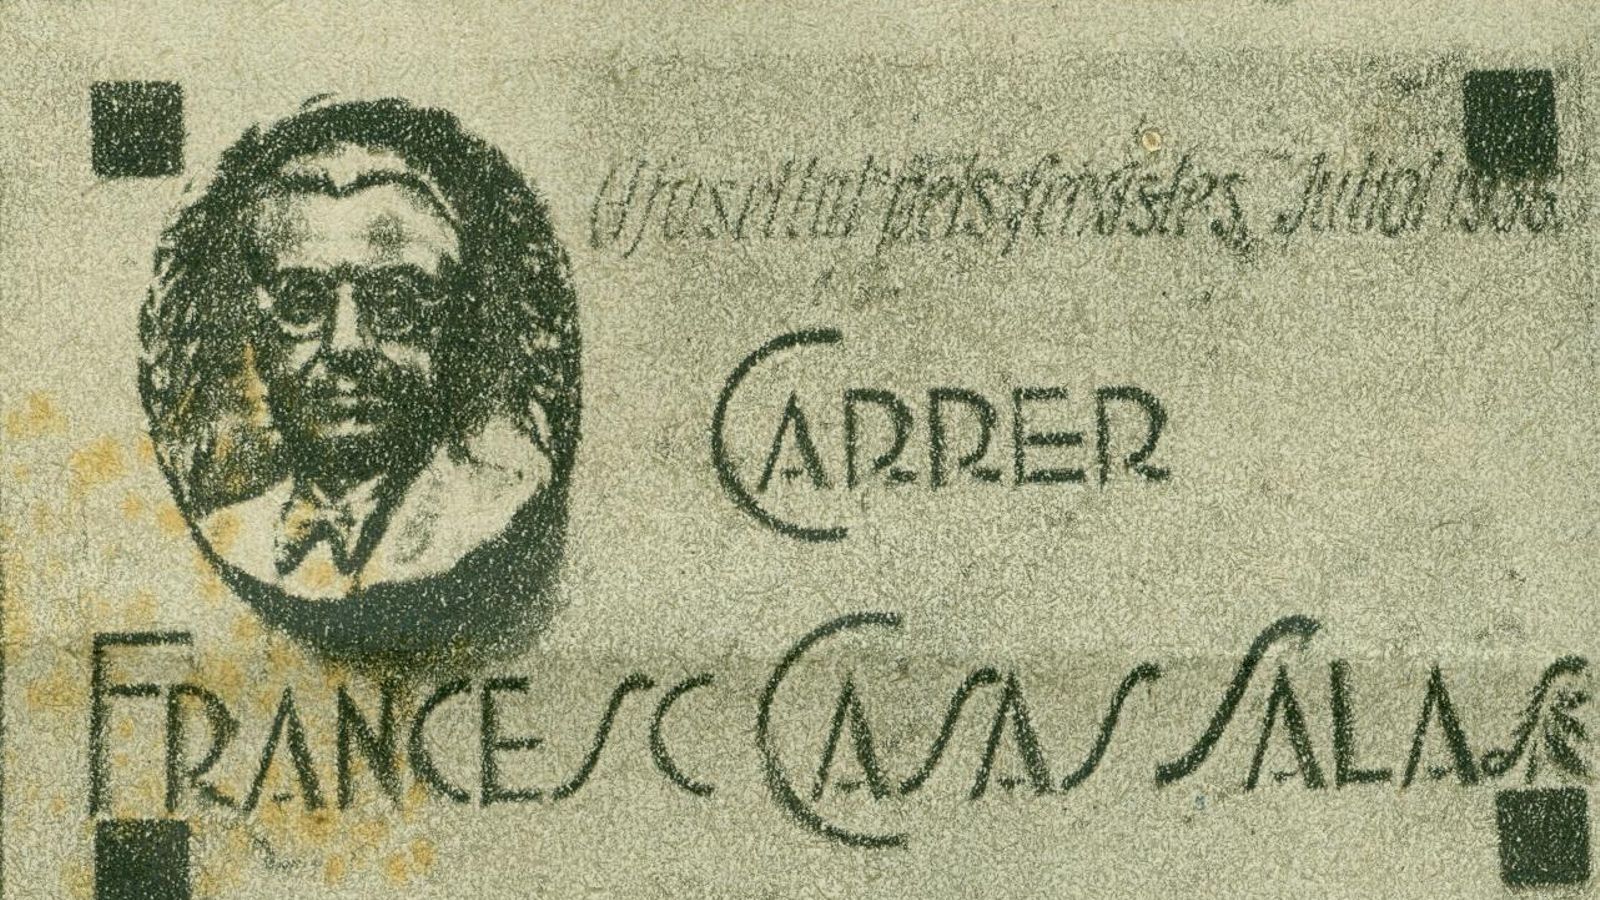 Afusellat pels feixistes, Juliol 1936.
CARRER
FRANCESC CASAS SALAS